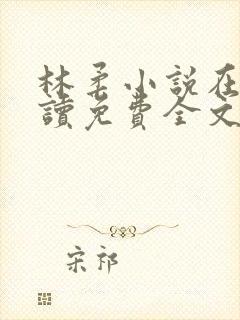 林柔小說在
讀免費全文
宋祁